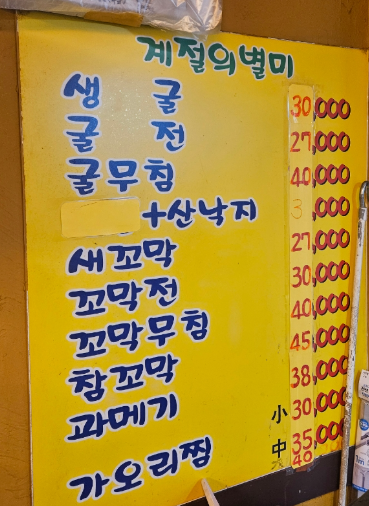 계절의별미
생 굴 30,000
굴 전 27,000
굴무침 40,000
+산낙지
새꼬막 27,000
꼬막전 30,000
꼬막무침 40,000
참꼬막 45,000
과메기 38,000
小 30,000
가오리찜 中 35,000